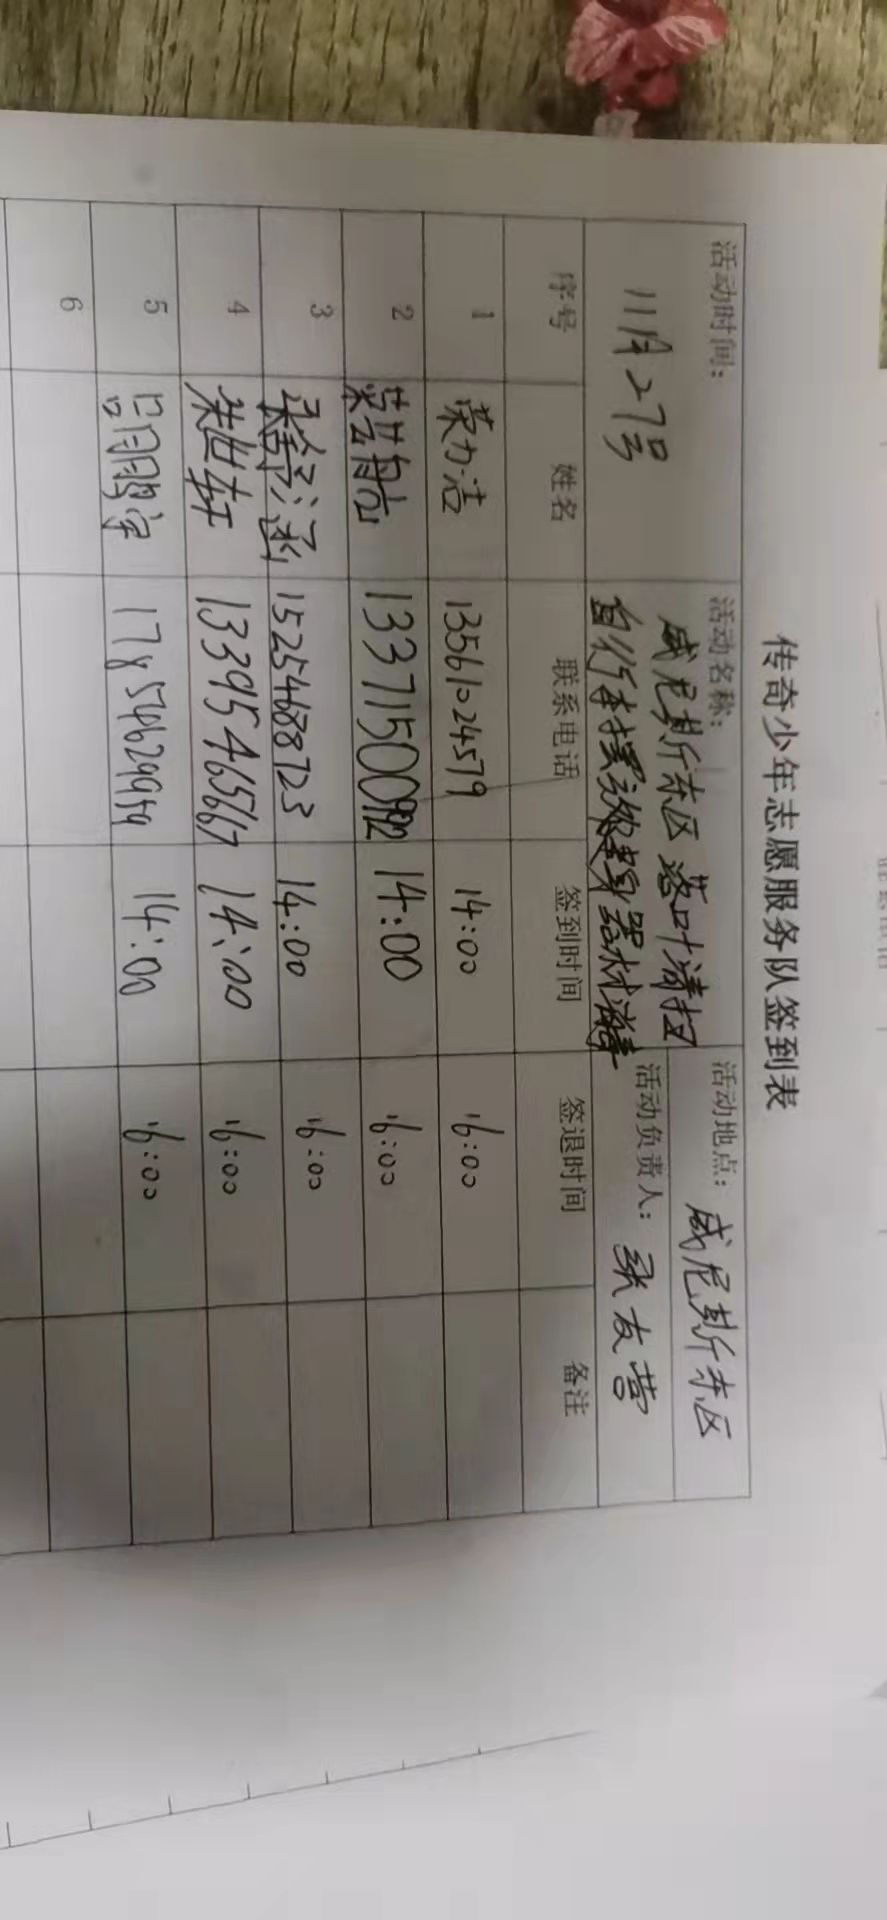 传奇少年志愿服务队签到表
活动时间: 11月27号
活动名称: 威尼斯东区落叶清扫
自行车摆放健身器材消毒
活动地点: 威尼斯东区
活动负责人: 张友营
序号 姓名 联系电话 签到时间 签退时间 备注
1 荣力洁 13561024579 14:00 16:00
2 14:00 16:00
3 涵 15254688723 14:00 16:00
4 14:00 16:00
5 吕鹏宇 17854629959 14:00 16:00
6